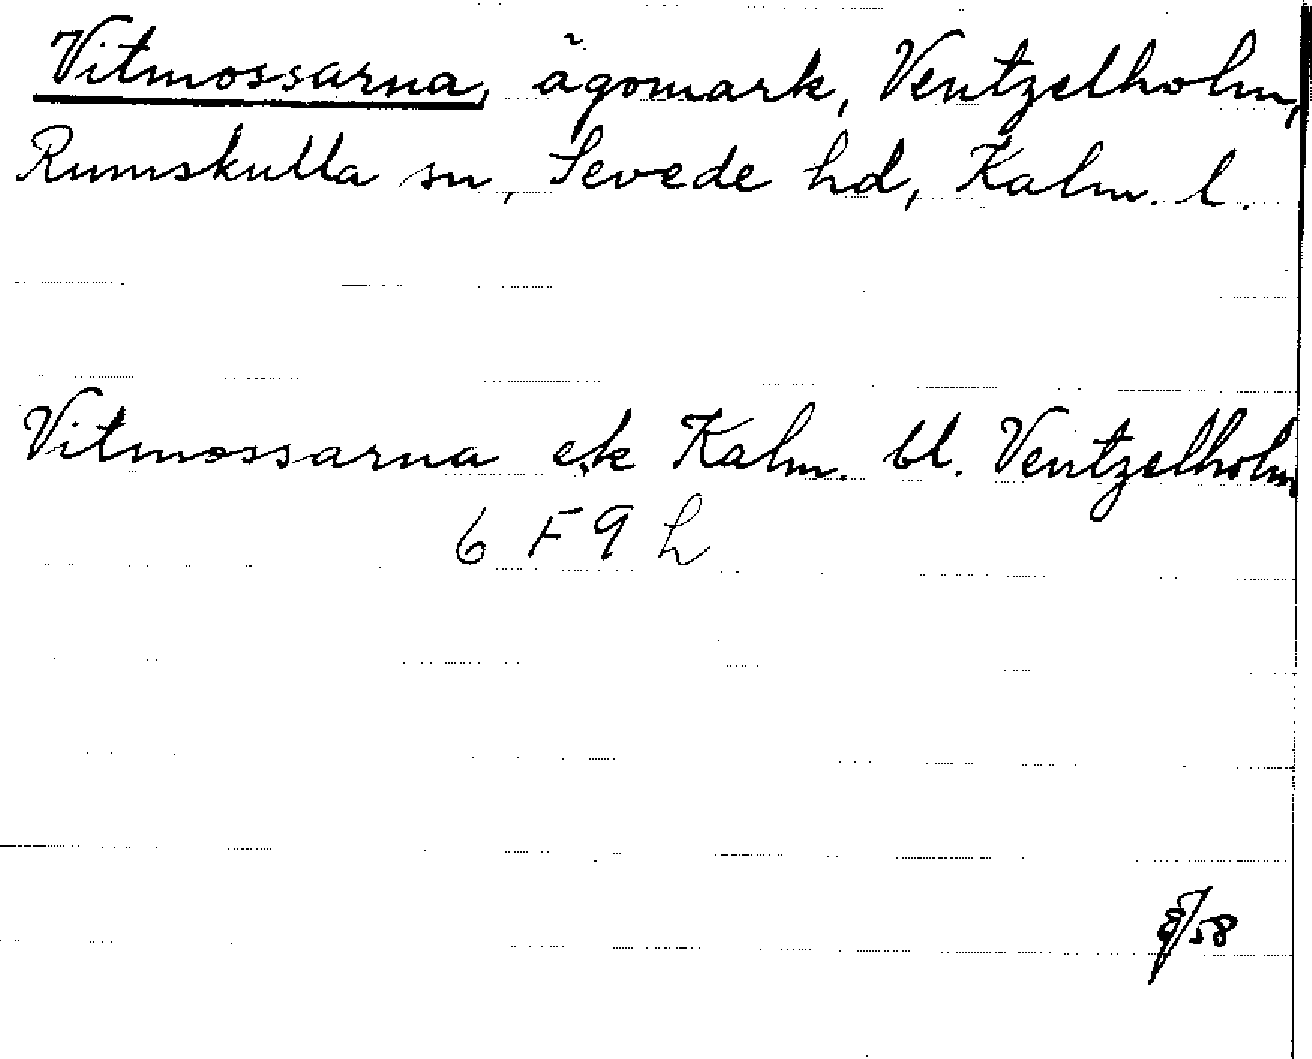 Vitmossarna, ägomark, Ventzelholm,
Rumskulla sn, Sevede hd, Kalm. l.
Vitmossarna ek Kalm. bl. Ventzelholm
6 F 9 h